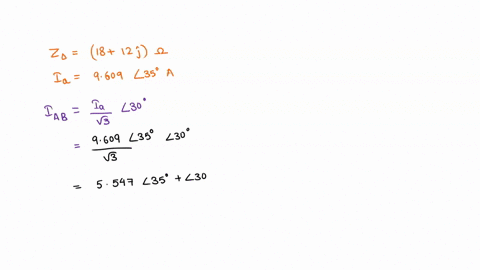 Z_Δ = (18 + 12j) Ω
I_a = 9.609 ∠35° A
I_AB = I_a/√3 ∠30°
= 9.609 ∠35° ∠30° / √3
= 5.547 ∠35° + ∠30